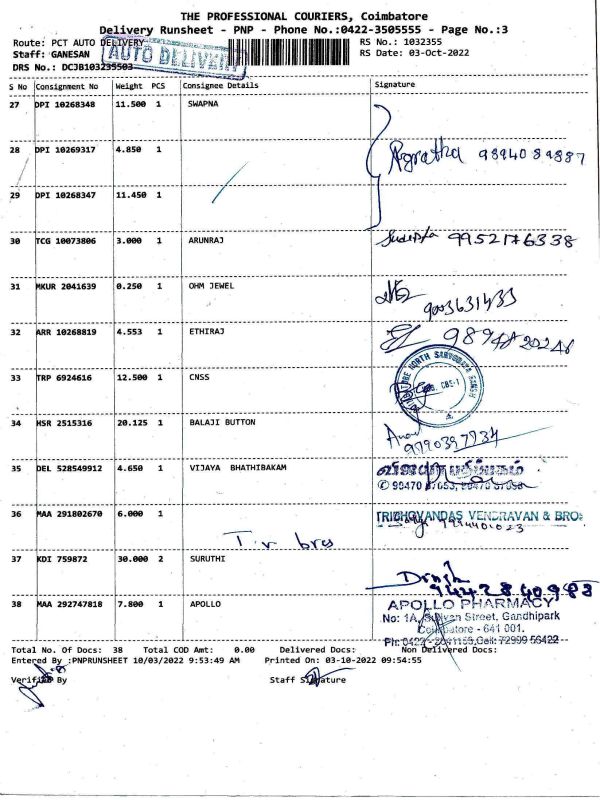 THE PROFESSIONAL COURIERS, Coimbatore
Delivery Runsheet - PNP - Phone No.:0422-3505555 - Page No.:3
Route: PCT AUTO DELIVERY
RS No.: 1032355
Staff: GANESAN
RS Date: 03-Oct-2022
DRS No.: DCJB103235503
AUTO DELIVERY
S No Consignment No Weight PCS Consignee Details Signature
27 DPI 10268348 11.500 1 SWAPNA
28 DPI 10269317 4.850 1 9894089887
29 DPI 10268347 11.450 1
30 TCG 10073806 3.000 1 ARUNRAJ
31 MKUR 2041639 0.250 1 OHM JEWEL
32 ARR 10268819 4.553 1 ETHIRAJ
33 TRP 6924616 12.500 1 CNSS
34 HSR 2515316 20.125 1 BALAJI BUTTON
35 DEL 528549912 4.650 1 VIJAYA BHATHIBAKAM
36 MAA 291802670 6.000 1 VENDRAVAN & BRO
37 KDI 759872 30.000 2 SURUTHI
38 MAA 292747818 7.800 1 APOLLO
APOLLO PHARMACY
No: 1A, Street, Gandhipark
Coimbatore - 641 001.
Cell: 72999 56422
Total No. Of Docs: 38 Total COD Amt: 0.00 Delivered Docs: Non Delivered Docs:
Entered By :PNPRUNSHEET 10/03/2022 9:53:49 AM Printed On: 03-10-2022 09:54:55
Verified By Staff Signature